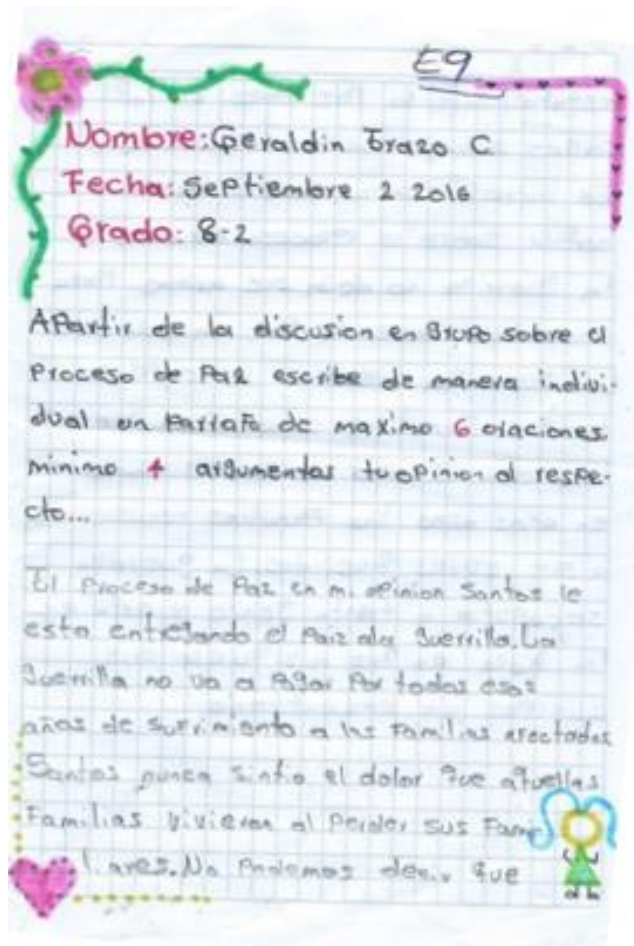 E9
Nombre: Geraldin Erazo C
Fecha: Septiembre 2 2016
Grado: 8-2
APartir de la discusion en grupo sobre el
Proceso de Paz escribe de manera indivi-
dual un Parrafo de maximo 6 oraciones
minimo 4 argumentas tu opinion al respe-
cto...
El Proceso de Paz en mi opinion Santos le
esta entregando el Paiz ala guerrilla. La
guerrilla no va a Pagar Por todos esos
años de sufrimiento a las Familias afectadas
Santos nunca sintio el dolor que aquellas
Familias vivieron al Perder sus Fami
liares. No Podemos decir que